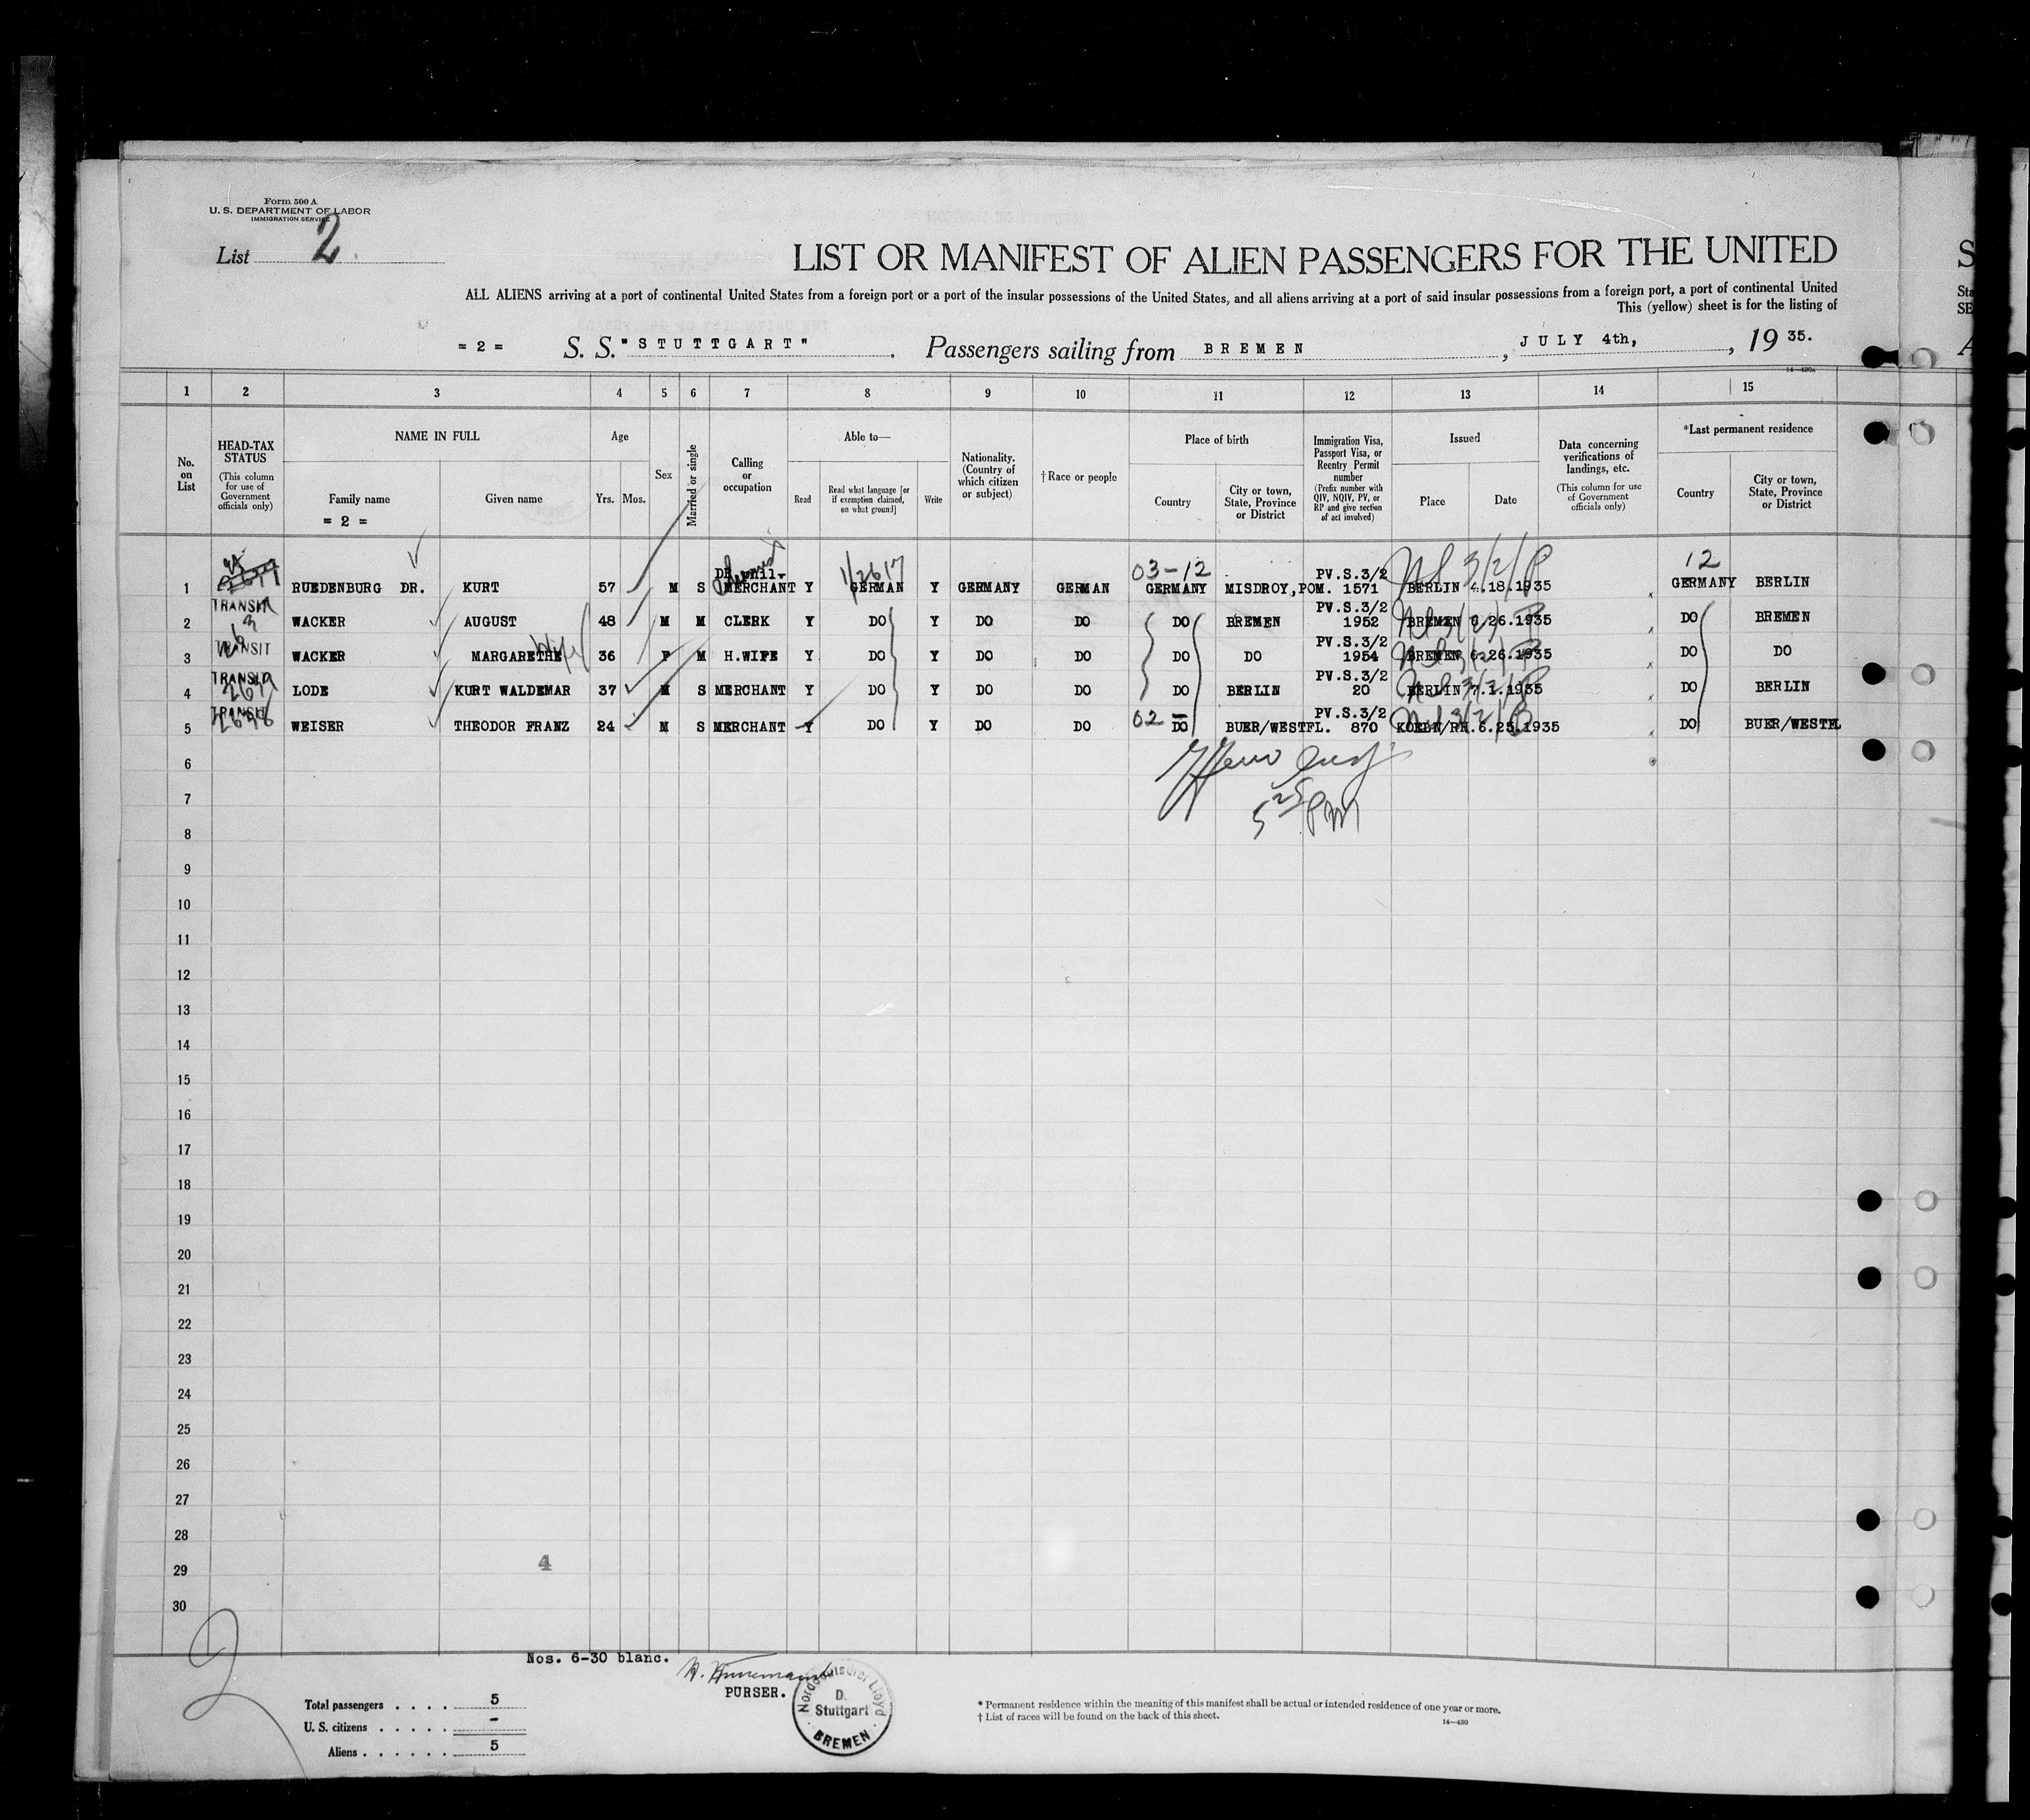 Form 500 A
U. S. DEPARTMENT OF LABOR
IMMIGRATION SERVICE
List 2
LIST OR MANIFEST OF ALIEN PASSENGERS FOR THE UNITED
ALL ALIENS arriving at a port of continental United States from a foreign port or a port of the insular possessions of the United States, and all aliens arriving at a port of said insular possessions from a foreign port, a port of continental United
This (yellow) sheet is for the listing of
= 2 = S. S. "STUTTGART". Passengers sailing from BREMEN, JULY 4th, , 19 35.
14—430a
1 2 3 4 5 6 7 8 9 10 11 12 13 14 15
No. on List
HEAD-TAX STATUS
(This column for use of Government officials only)
NAME IN FULL
Family name
= 2 =
Given name
Age
Yrs. Mos.
Sex
Married or single
Calling or occupation
Able to—
Read
Read what language [or if exemption claimed, on what ground]
Write
Nationality. (Country of which citizen or subject)
†Race or people
Place of birth
Country
City or town, State, Province or District
Immigration Visa, Passport Visa, or Reentry Permit number
(Prefix number with QIV, NQIV, PV, or RP and give section of act involved)
Issued
Place
Date
Data concerning verifications of landings, etc.
(This column for use of Government officials only)
*Last permanent residence
Country
City or town, State, Province or District
DR. phil. 03-12 PV.S.3/2 12
1 RUEDENBURG DR. KURT 57 M S MERCHANT Y GERMAN Y GERMANY GERMAN GERMANY MISDROY,POM. 1571 BERLIN 4.18.1935 GERMANY BERLIN
TRANSIT PV.S.3/2
2 WACKER AUGUST 48 M M CLERK Y DO Y DO DO DO BREMEN 1952 BREMEN 6.26.1935 DO BREMEN
TRANSIT Wife PV.S.3/2
3 WACKER MARGARETHE 36 F M H.WIFE Y DO Y DO DO DO DO 1954 BREMEN 6.26.1935 DO DO
TRANSIT PV.S.3/2
4 LODE KURT WALDEMAR 37 M S MERCHANT Y DO Y DO DO DO BERLIN 20 BERLIN 7.1.1935 DO BERLIN
TRANSIT 02 PV.S.3/2
5 WEISER THEODOR FRANZ 24 M S MERCHANT Y DO Y DO DO DO BUER/WESTFL. 870 KOELN/RH. 6.25.1935 DO BUER/WESTFL
6
5 25 PM
7
8
9
10
11
12
13
14
15
16
17
18
19
20
21
22
23
24
25
26
27
28
29
4
30
2
Nos. 6-30 blanc.
PURSER.
Norddeutscher Lloyd
D.
Stuttgart
BREMEN
Total passengers . . . . 5
U. S. citizens . . . . . -
Aliens . . . . . . 5
* Permanent residence within the meaning of this manifest shall be actual or intended residence of one year or more.
† List of races will be found on the back of this sheet.
14—430